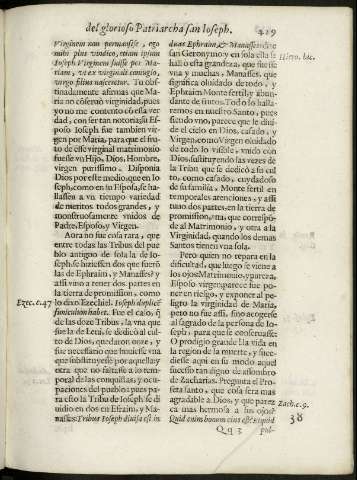 del glorioso Patriarcha san Ioseph. 429
Virginem non permansisse, ego
mihi plus vindico, etiam ipsum
Ioseph Virginem fuisse per Ma-
riam, vt ex virginali coniugio,
virgo filius nasceretur. Tu obs-
tinadamente afirmas que Ma-
ria no cõseruò virginidad, pues
yo no me contento cõ essa ver-
dad, con ser tan notoria; su Es-
poso Ioseph fue tambien vir-
gen por Maria, para que el fru-
to de esse virginal matrimonio
fuesse vn Hijo, Dios, Hombre,
virgen purissimo. Disponia
Dios por este medio, que en Io-
seph, como en su Esposa, se ha-
llassen a vn tiempo variedad
de meritos todos grandes, y
monstruosamente vnidos de
Padre, Esposo, y Virgen.
Aora no fue cosa rara, que
entre todas las Tribus del pue-
blo antiguo de sola la de Io-
seph, se hiziessen dos que fuerõ
las de Ephraim, y Manasses? y
assi vino a tener dos partes en
la tierra de promission, como
lo dixo Ezechiel. Ioseph duplicẽ
funiculum habet. Fue el caso, q̃
de las doze Tribus, la vna que
fue la de Leuì, se dedicò al cul-
to de Dios, quedaron onze, y
fue necessario que huuiesse vna
que substituyesse por aquella; y
otra que no faltasse a lo tem-
poral de las conquistas, y ocu-
paciones del pueblo; pues pa-
ra esto la Tribu de Ioseph se di-
uidiò en dos en Efraim, y Ma-
nasses: Tribus Ioseph diuisa est in
Ezec. c. 47
duas Ephraim, & Manasses: dize
san Geronymo; y en sola ella se
hallò essa grandeza, que fuesse
vna y muchas, Manasses, que
significa oluidado de todo, y
Ephraim Monte fertil y abun-
dante de frutos. Todo lo halla-
remos en nuestro Santo, pues
siendo vno, parece que le diui-
de el cielo en Dios, casado, y
Virgen; como Virgen oluidado
de todo lo visible, vnido con
Dios, sustituyendo las vezes de
la Tribu que se dedicò a su cul-
to, como casado, cuydadoso
de su familia, Monte fertil en
temporales atenciones, y assi
tuuo dos partes, en la tierra de
promission, vna, que correspõ-
de al Matrimonio, y otra a la
Virginidad, quando los demas
Santos tienen vna sola.
Pero quien no repara en la
dificultad, que luego se viene a
los ojos? Matrimonio, y pureza,
Esposo virgen parece fue po-
ner en riesgo, y exponer al pe-
ligro la virginidad de Maria,
pero no fue assi, sino acogerse
al sagrado de la persona de Io-
seph, para que se conseruasse:
O prodigio grande! la vida en
la region de la muerte, y suce-
diesse aqui en su modo aquel
sucesso tan digno de assombro
de Zacharias. Pregunta el Pro-
feta santo, que cosa sera mas
agradable a Dios, y que parez
ca mas hermosa a sus ojos?
Quid enim bonum eius est, & quid
Hiero. hic.
Zach. c. 9.
38
Qq 3 pul-